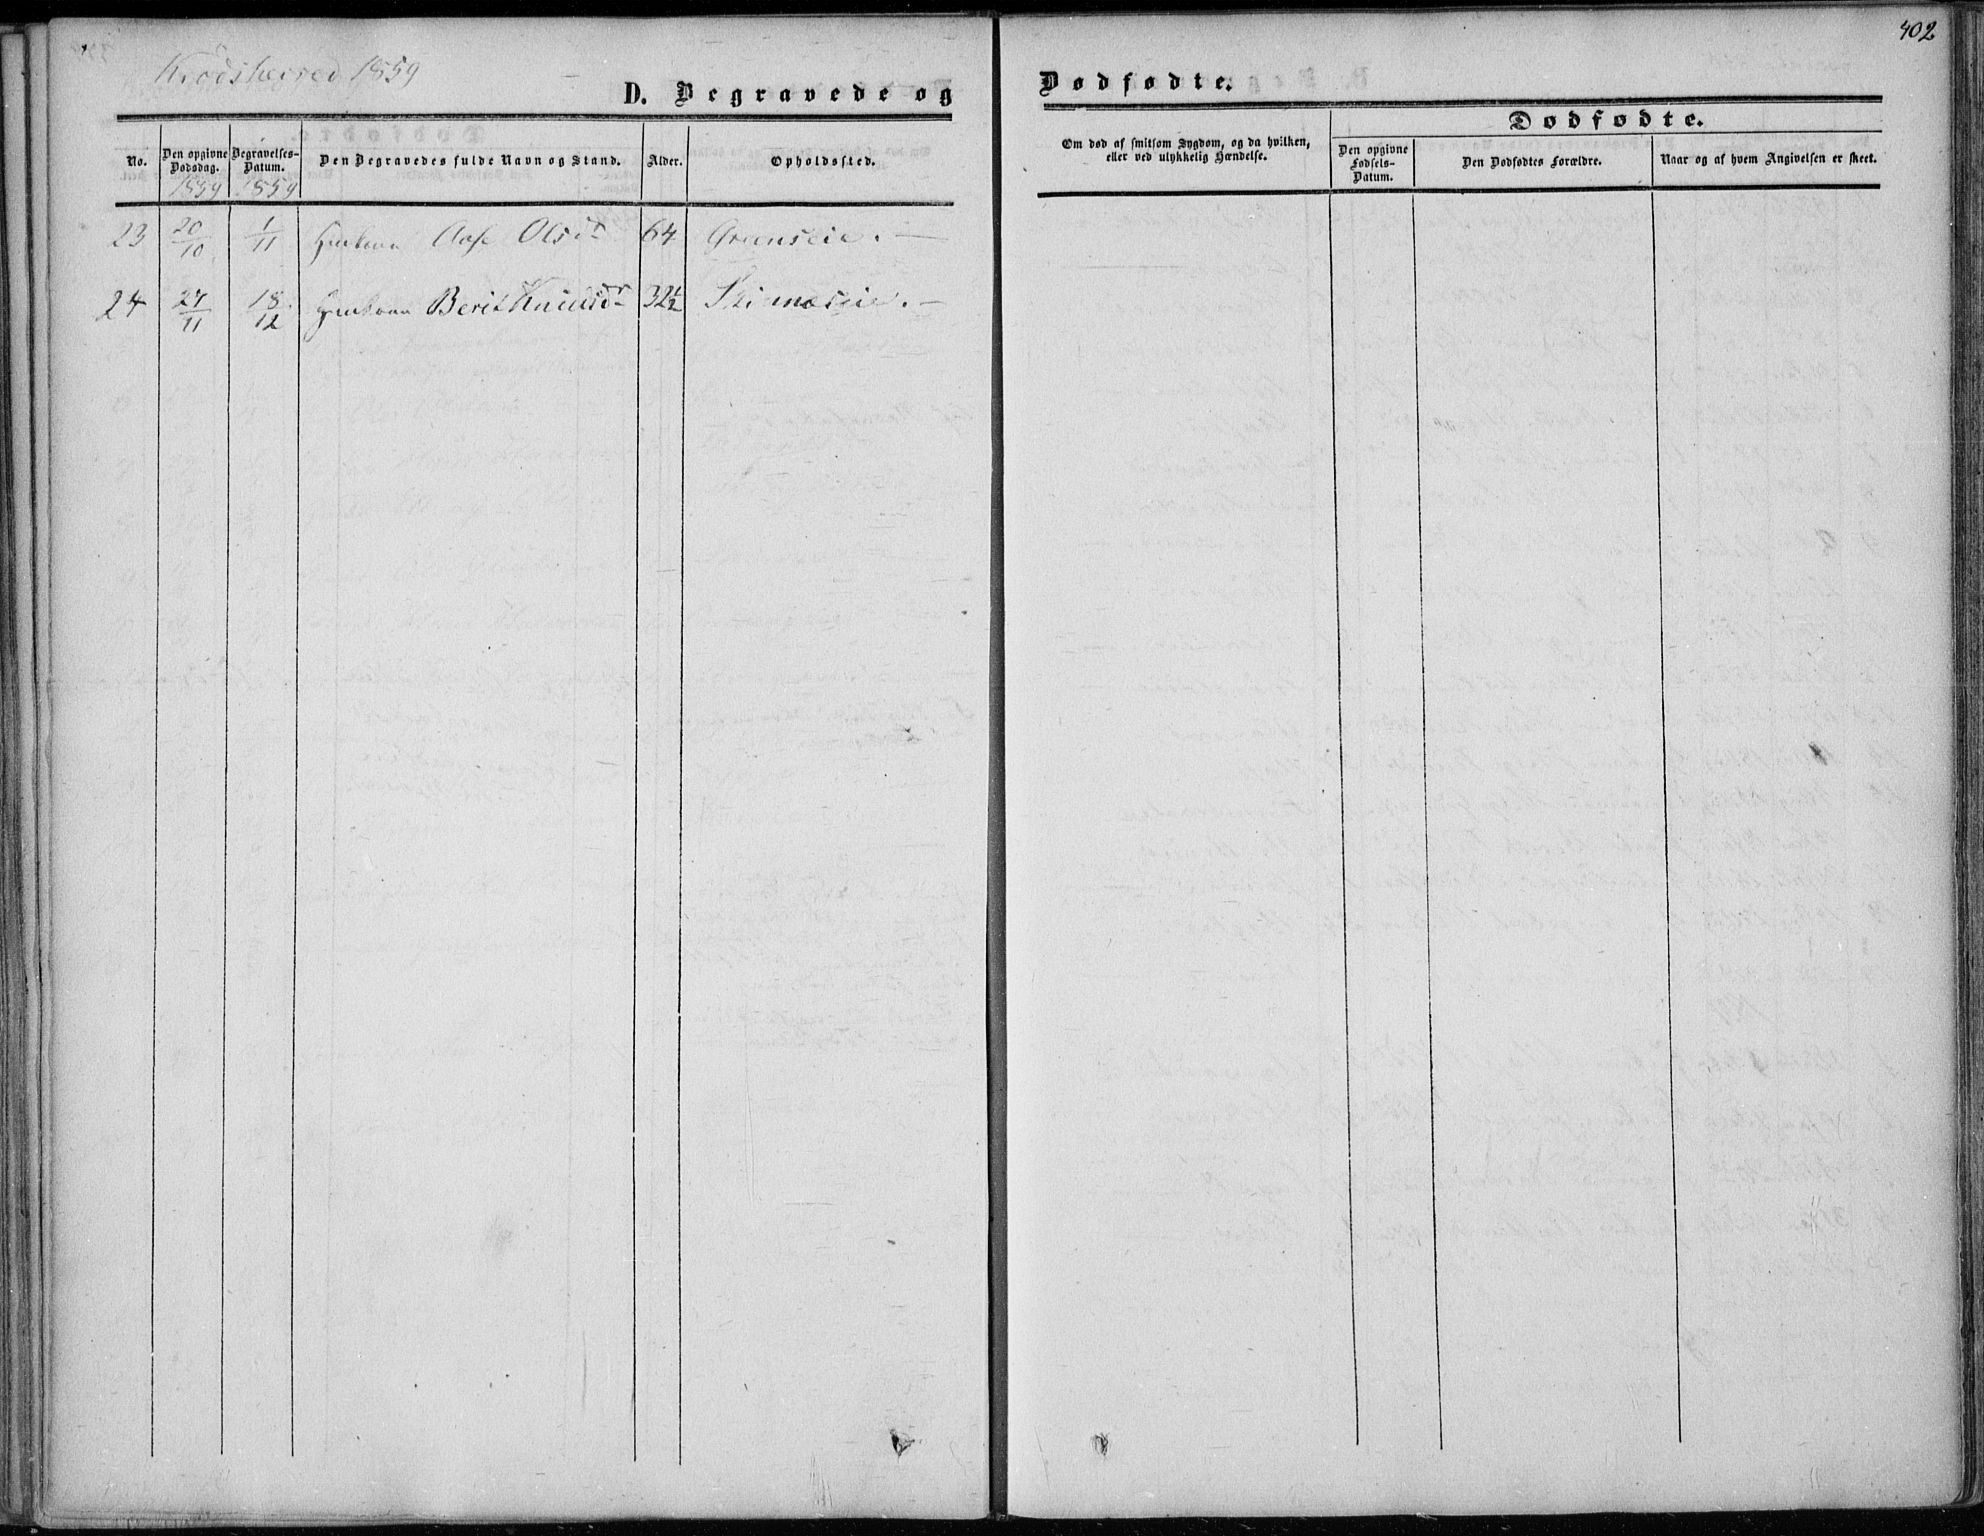 402
Krodsherred 1859
D. Begravede og
Dødfødte.
No.
Den opgivne Dødsdag.
Begravelses-Datum.
Den Begravedes fulde Navn og Stand.
Alder.
Opholdssted.
Om død af smitsom Sygdom, og da hvilken, eller ved ulykkelig Hændelse.
Dødfødte.
Den opgivne Fødsels-Datum.
Den Dødfødtes Forældre.
Naar og af hvem Angivelsen er skeet.
1859 1859
23 20/10 1/11 Huskone Aase Olsdr 64 Grønseie. —
24 27/11 18/12 Huskone Berit Knudsdr 32½ —